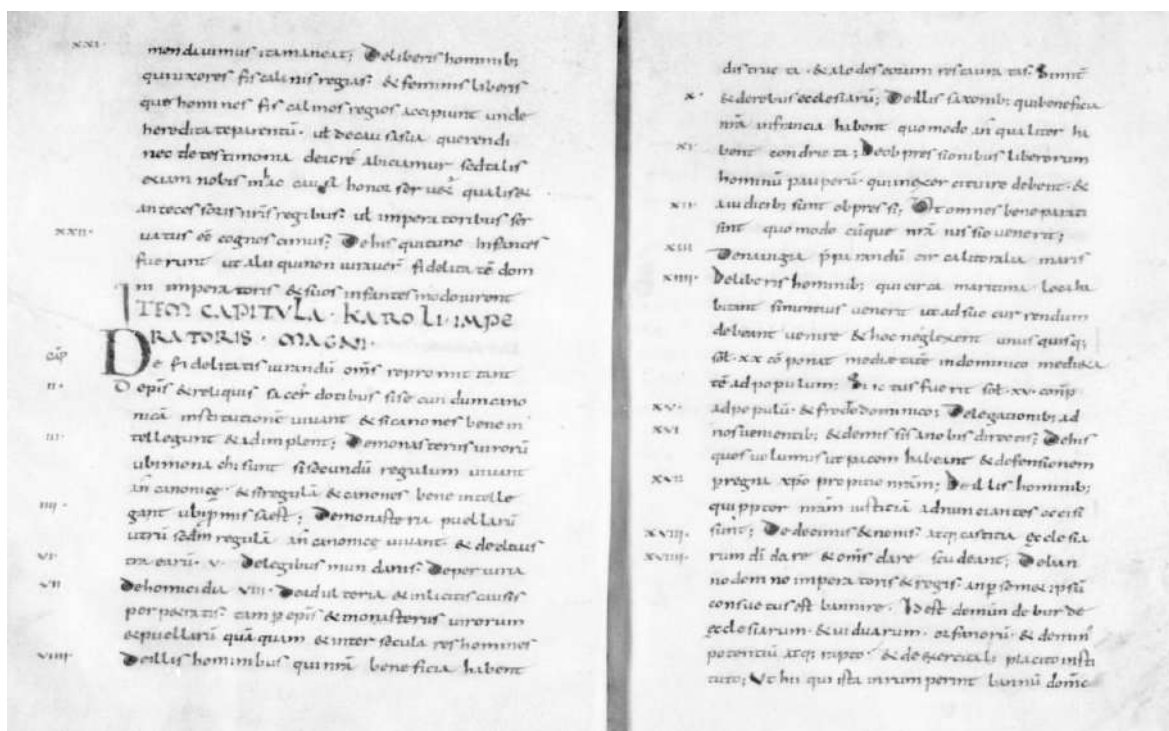 XXI· mondauimus ita maneat; De liberis hominibꝫ
qui uxores fiscalinis regias· & feminis liberis
que homines fiscalinos regios accipiunt unde
hereditate parentū· uł de causa sua querendi
nec de testimonia abiciantur sed talis
etiam nobis honor qualis &
antecessoris nr̄is regibus· uł imperatoribus ser
XXII· uatus eē cognoscimus; De his qui tunc infantes
fuerunt ut alii qui non iurauer̄ fidelitatē dom
ni imperatoris & suos infantes modo iurent
ITEM CAPITVLA· KAROLI· IMPE
RATORIS· MAGNI·
cāp De fidelitatis iurandū om̄s repromittant
II· De ep̄is & reliquis sacerdotibus si secundum cano
nicā institutionē uiuant & si canones bene in
III· tellegunt & adimplent; De monasteriis uirorū
ubi monachi sunt si secundū regulam uiuant
an̄ canonice· & si regulā & canones bene intelle
IIII· gant ubi p̄missa est; De monasteria puellarū
utrū sedm̄ regulā an̄ canonice uiuant· & de claus
VI· tra earū· V· De legibus mundanis· De periuria
VII De homicidia VIII· De adulteria & inlicitis causis
perpetratis· tam p ep̄is & monasteriis uirorum
& puellarū quā quam & inter seculares homines
VIIII· De illis hominibus qui nr̄a beneficia habent
distructa· & alodes eorum restauratas· Similit̄
X· & de rebus ecclesiarū; De illis saxonibꝫ qui beneficia
nr̄a in francia habent quomodo an̄ qualiter ha
XI· bent condricta; De obpressionibus liberorum
hominū pauperū· qui in exercitu ire debent· &
XII· a iudicibꝫ sunt obpressi; Ut omnes bene parati
sint quomodo cūque nr̄a iussio uenerit;
XIII De nauigia p̄parandū circa litoralia maris
XIIII· De liberis hominibꝫ qui circa maritima loca ha
bitant si nuntius uenerit ut ad succurrendum
debeant uenire & hoc neglexerit unus quisqꝫ
soł· XX cōponat medietatē in dominico medi&a
tē ad populum; Si lictus fuerit soł· XV· cōnp̄
XV· ad populū & fredo dominico; De legationibꝫ ad
XVI nos uenientibꝫ & de missis a nobis directis; De his
quos uolumus ut pacem habeant & defensionem
XVII p regna xp̄o propitio nr̄am; De illis hominibꝫ
qui ppter nr̄am iustitiā adnunciantes occisi
XVIII· sunt; De decimis & nonis· atqꝫ iustitia ęcclesia
XVIIII· rum dī dare & om̄is dare studeant; De ban
no domno imperatoris & regis· an̄ p sem& ipsū
consuetus est bannire· Id est de mundeburde
ęcclesiarum· & uiduarum· orfanorū· & de min'
potentiū atqꝫ rapto· & de exercitali placito insti
tuto; Ut hii qui ista inrumperint bannū domīc